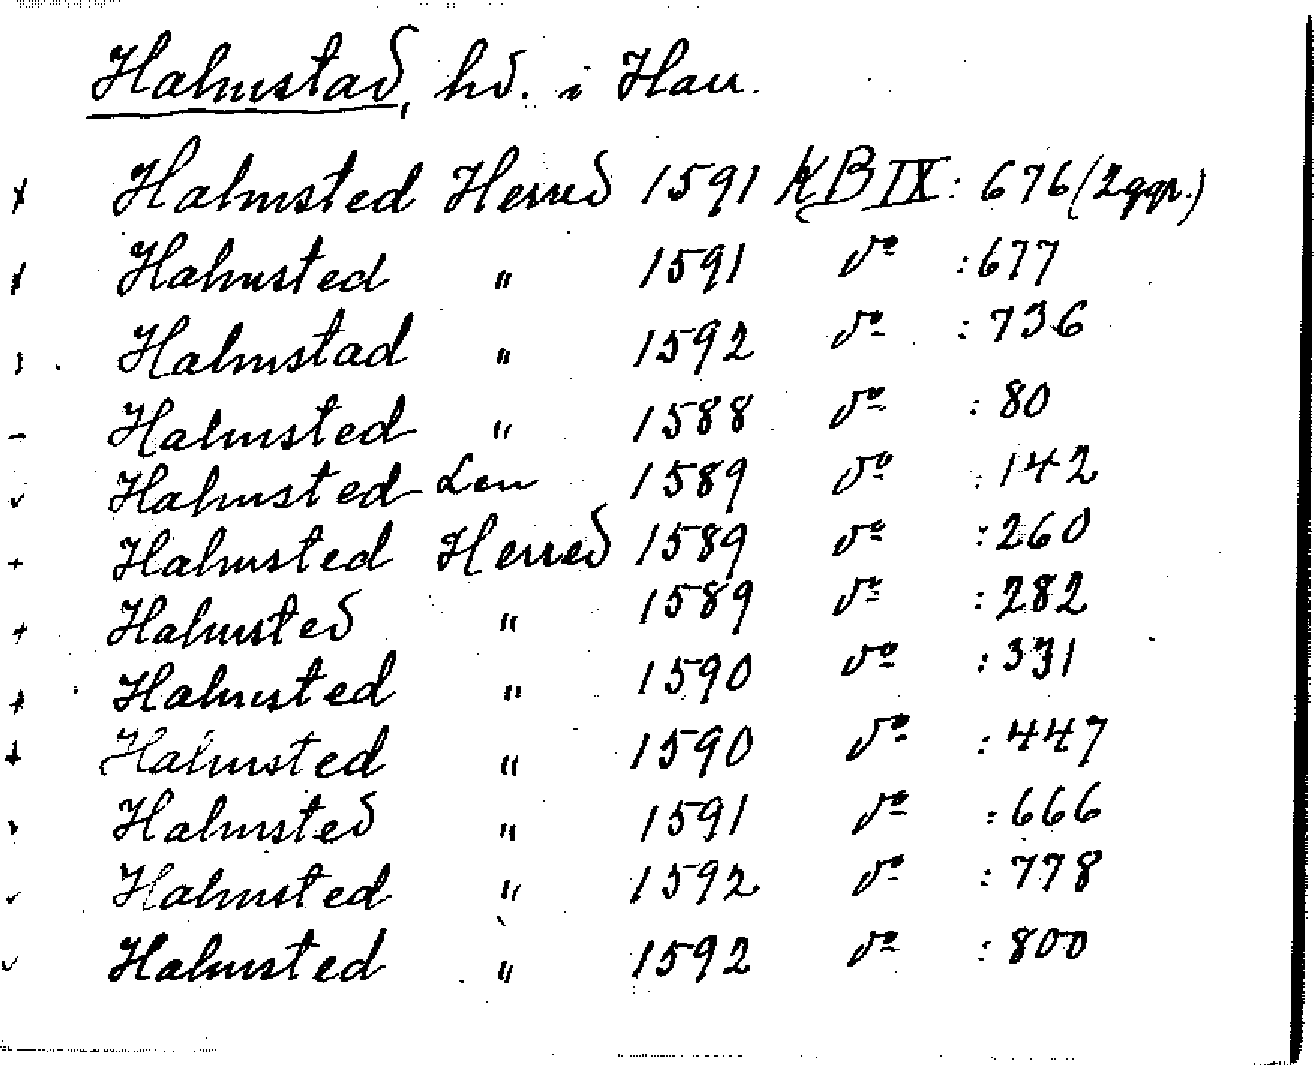 Halmstad, hd. i Hall.
x Halmsted Herred 1591 KB IX: 676 (2 ggr.)
x Halmsted " 1591 do :677
Halmstad " 1592 do :736
- Halmsted " 1588 do :80
v Halmsted Len 1589 do :142
+ Halmsted Herred 1589 do :260
+ Halmsted " 1589 do :282
+ Halmsted " 1590 do :331
+ Halmsted " 1590 do :447
Halmsted " 1591 do :666
v Halmsted " 1592 do :778
v Halmsted " 1592 do :800